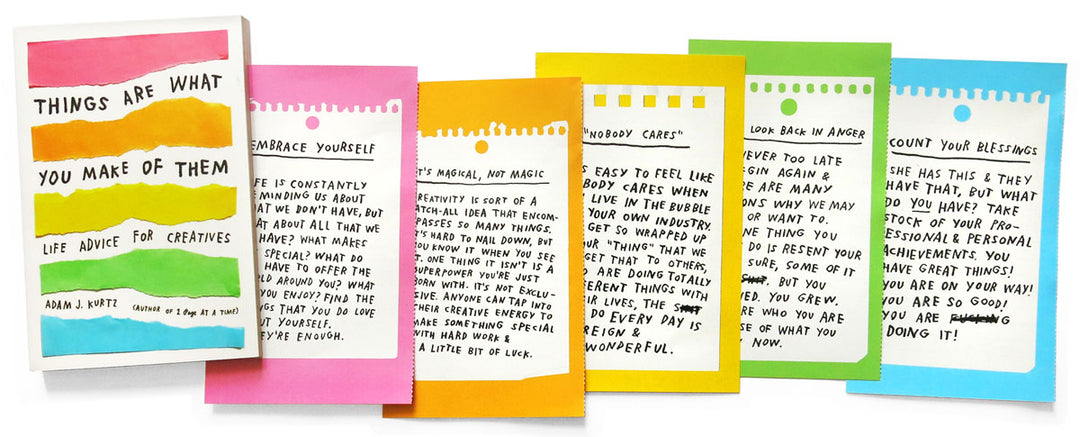 THINGS ARE WHAT
YOU MAKE OF THEM
LIFE ADVICE FOR CREATIVES
ADAM J. KURTZ (AUTHOR OF 1 PAGE AT A TIME)
EMBRACE YOURSELF
FE IS CONSTANTLY
EMINDING US ABOUT
AT WE DON'T HAVE, BUT
AT ABOUT ALL THAT WE
HAVE? WHAT MAKES
SPECIAL? WHAT DO
HAVE TO OFFER THE
LD AROUND YOU? WHAT
YOU ENJOY? FIND THE
NGS THAT YOU DO LOVE
UT YOURSELF.
EY'RE ENOUGH.
IT'S MAGICAL, NOT MAGIC
CREATIVITY IS SORT OF A
ATCH-ALL IDEA THAT ENCOM-
PASSES SO MANY THINGS.
T'S HARD TO NAIL DOWN, BUT
YOU KNOW IT WHEN YOU SEE
T. ONE THING IT ISN'T IS A
SUPERPOWER YOU'RE JUST
BORN WITH. IT'S NOT EXCLU-
SIVE. ANYONE CAN TAP INTO
THEIR CREATIVE ENERGY TO
MAKE SOMETHING SPECIAL
WITH HARD WORK &
A LITTLE BIT OF LUCK.
"NOBODY CARES"
S EASY TO FEEL LIKE
BODY CARES WHEN
LIVE IN THE BUBBLE
YOUR OWN INDUSTRY.
GET SO WRAPPED UP
UR "THING" THAT WE
GET THAT TO OTHERS,
ARE DOING TOTALLY
FERENT THINGS WITH
IR LIVES, THE
DO EVERY DAY IS
REIGN &
WONDERFUL.
LOOK BACK IN ANGER
NEVER TOO LATE
EGIN AGAIN &
RE ARE MANY
ONS WHY WE MAY
OR WANT TO.
NE THING YOU
DO IS RESENT YOUR
SURE, SOME OF IT
BUT YOU
ED. YOU GREW.
RE WHO YOU ARE
SE OF WHAT YOU
NOW.
COUNT YOUR BLESSINGS
SHE HAS THIS & THEY
HAVE THAT, BUT WHAT
DO YOU HAVE? TAKE
STOCK OF YOUR PRO-
ESSIONAL & PERSONAL
ACHIEVEMENTS. YOU
HAVE GREAT THINGS!
YOU ARE ON YOUR WAY!
YOU ARE SO GOOD!
YOU ARE FUCKING
DOING IT!